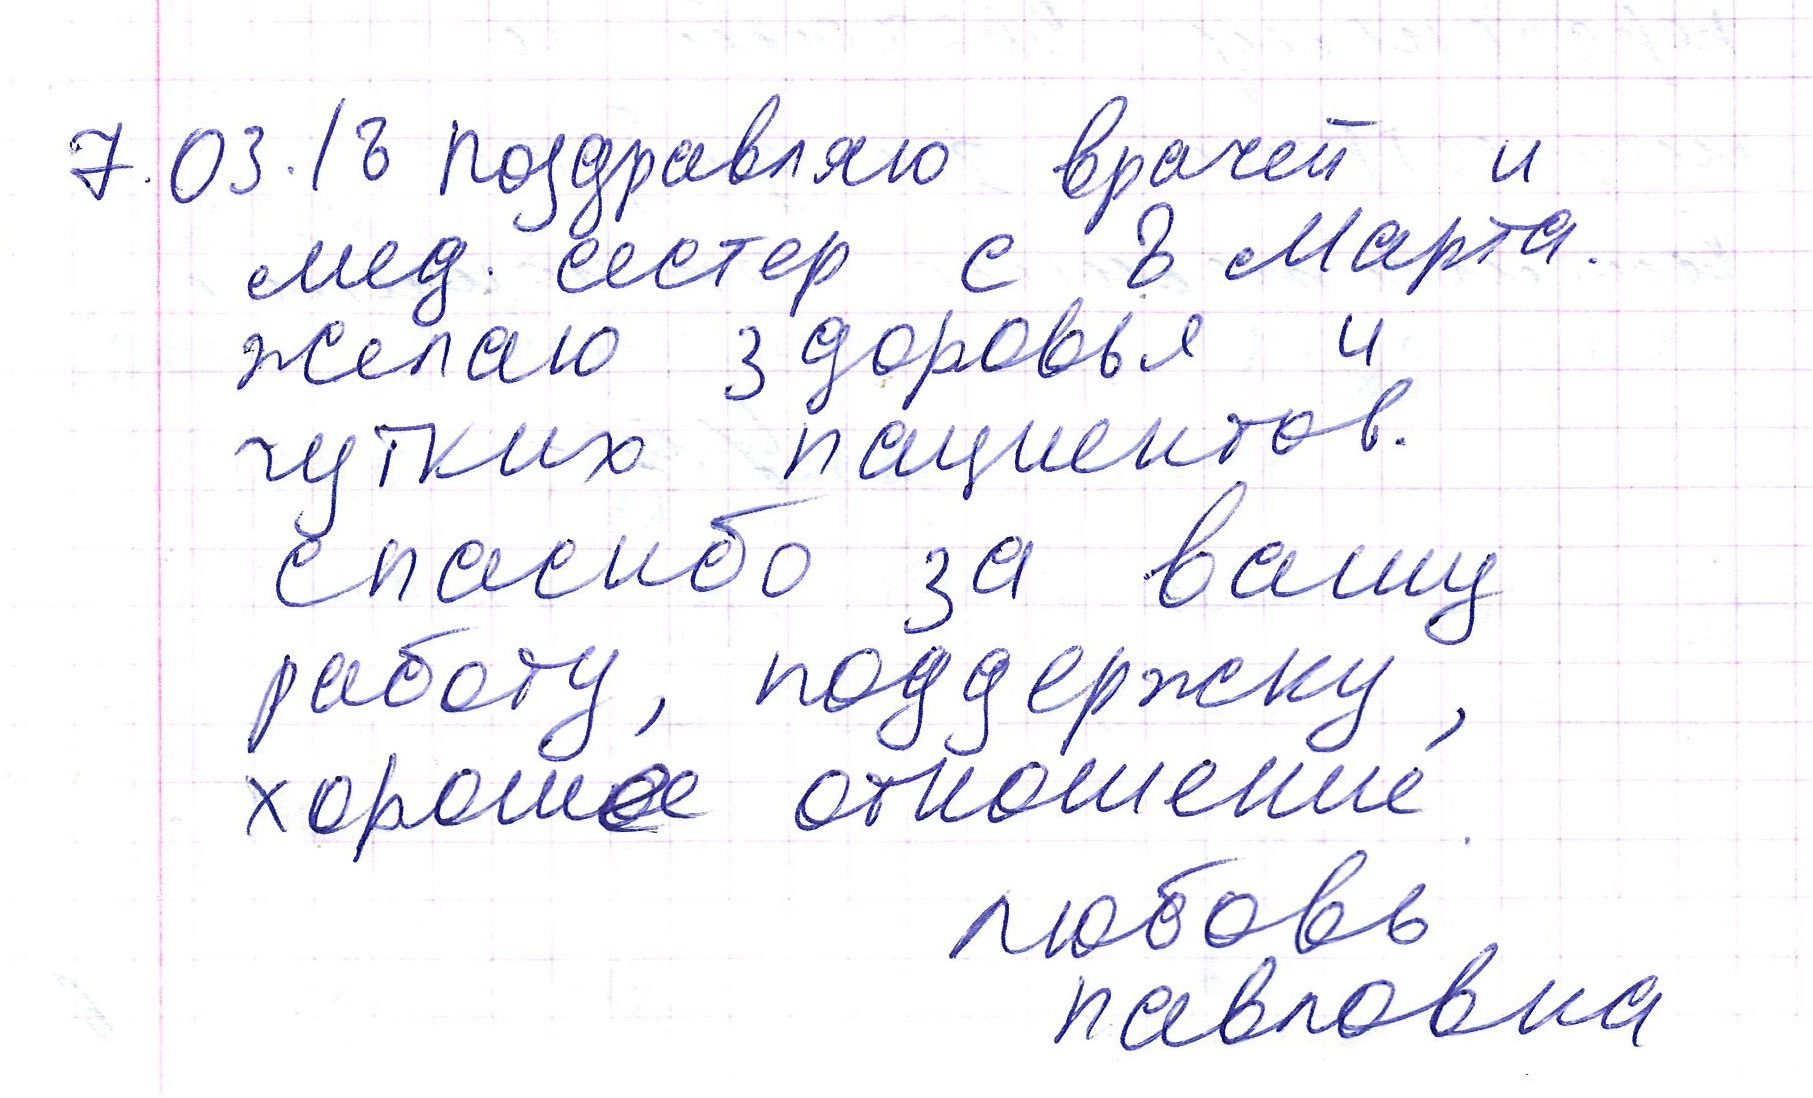 7.03.18 Поздравляю врачей и
мед. сестер с 8 Марта.
желаю здоровья и
чутких пациентов.
спасибо за вашу
работу, поддержку,
хорошее отношение.
любовь
павловна